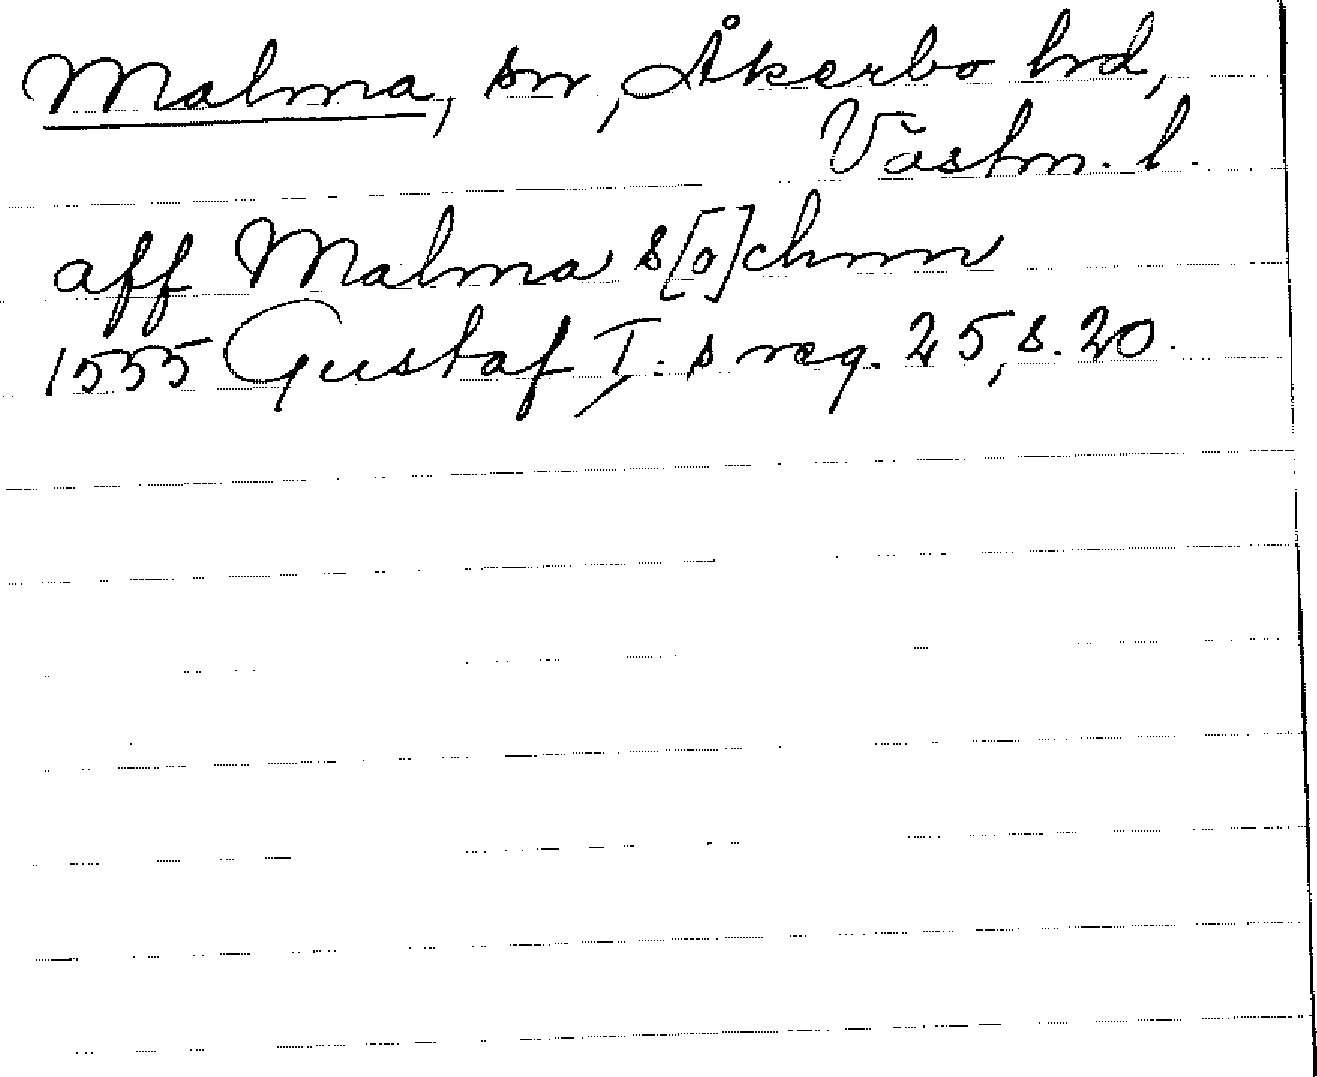 Malma, sn, Åkerbo hrd,
Västm. l.
aff Malma s[o]chnn
1555 Gustaf I:s reg. 25, s. 20.